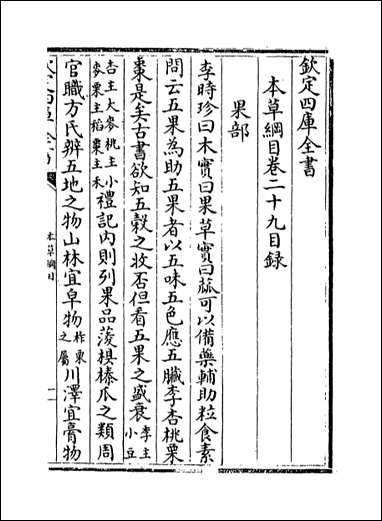 欽定四庫全書
本草綱目卷二十九目録
果部
李時珍曰木實曰果草實曰蓏可以備藥輔助粒食素
問云五果為助五果者以五味五色應五臟李杏桃栗
棗是矣古書欲知五穀之收否但看五果之盛衰李主小豆
杏主大麥桃主小麥栗主稻棗主禾禮記内則列果品蔆椇榛瓜之類周
官職方氏辨五地之物山林宜皁物柞栗之屬川澤宜膏物
本草綱目